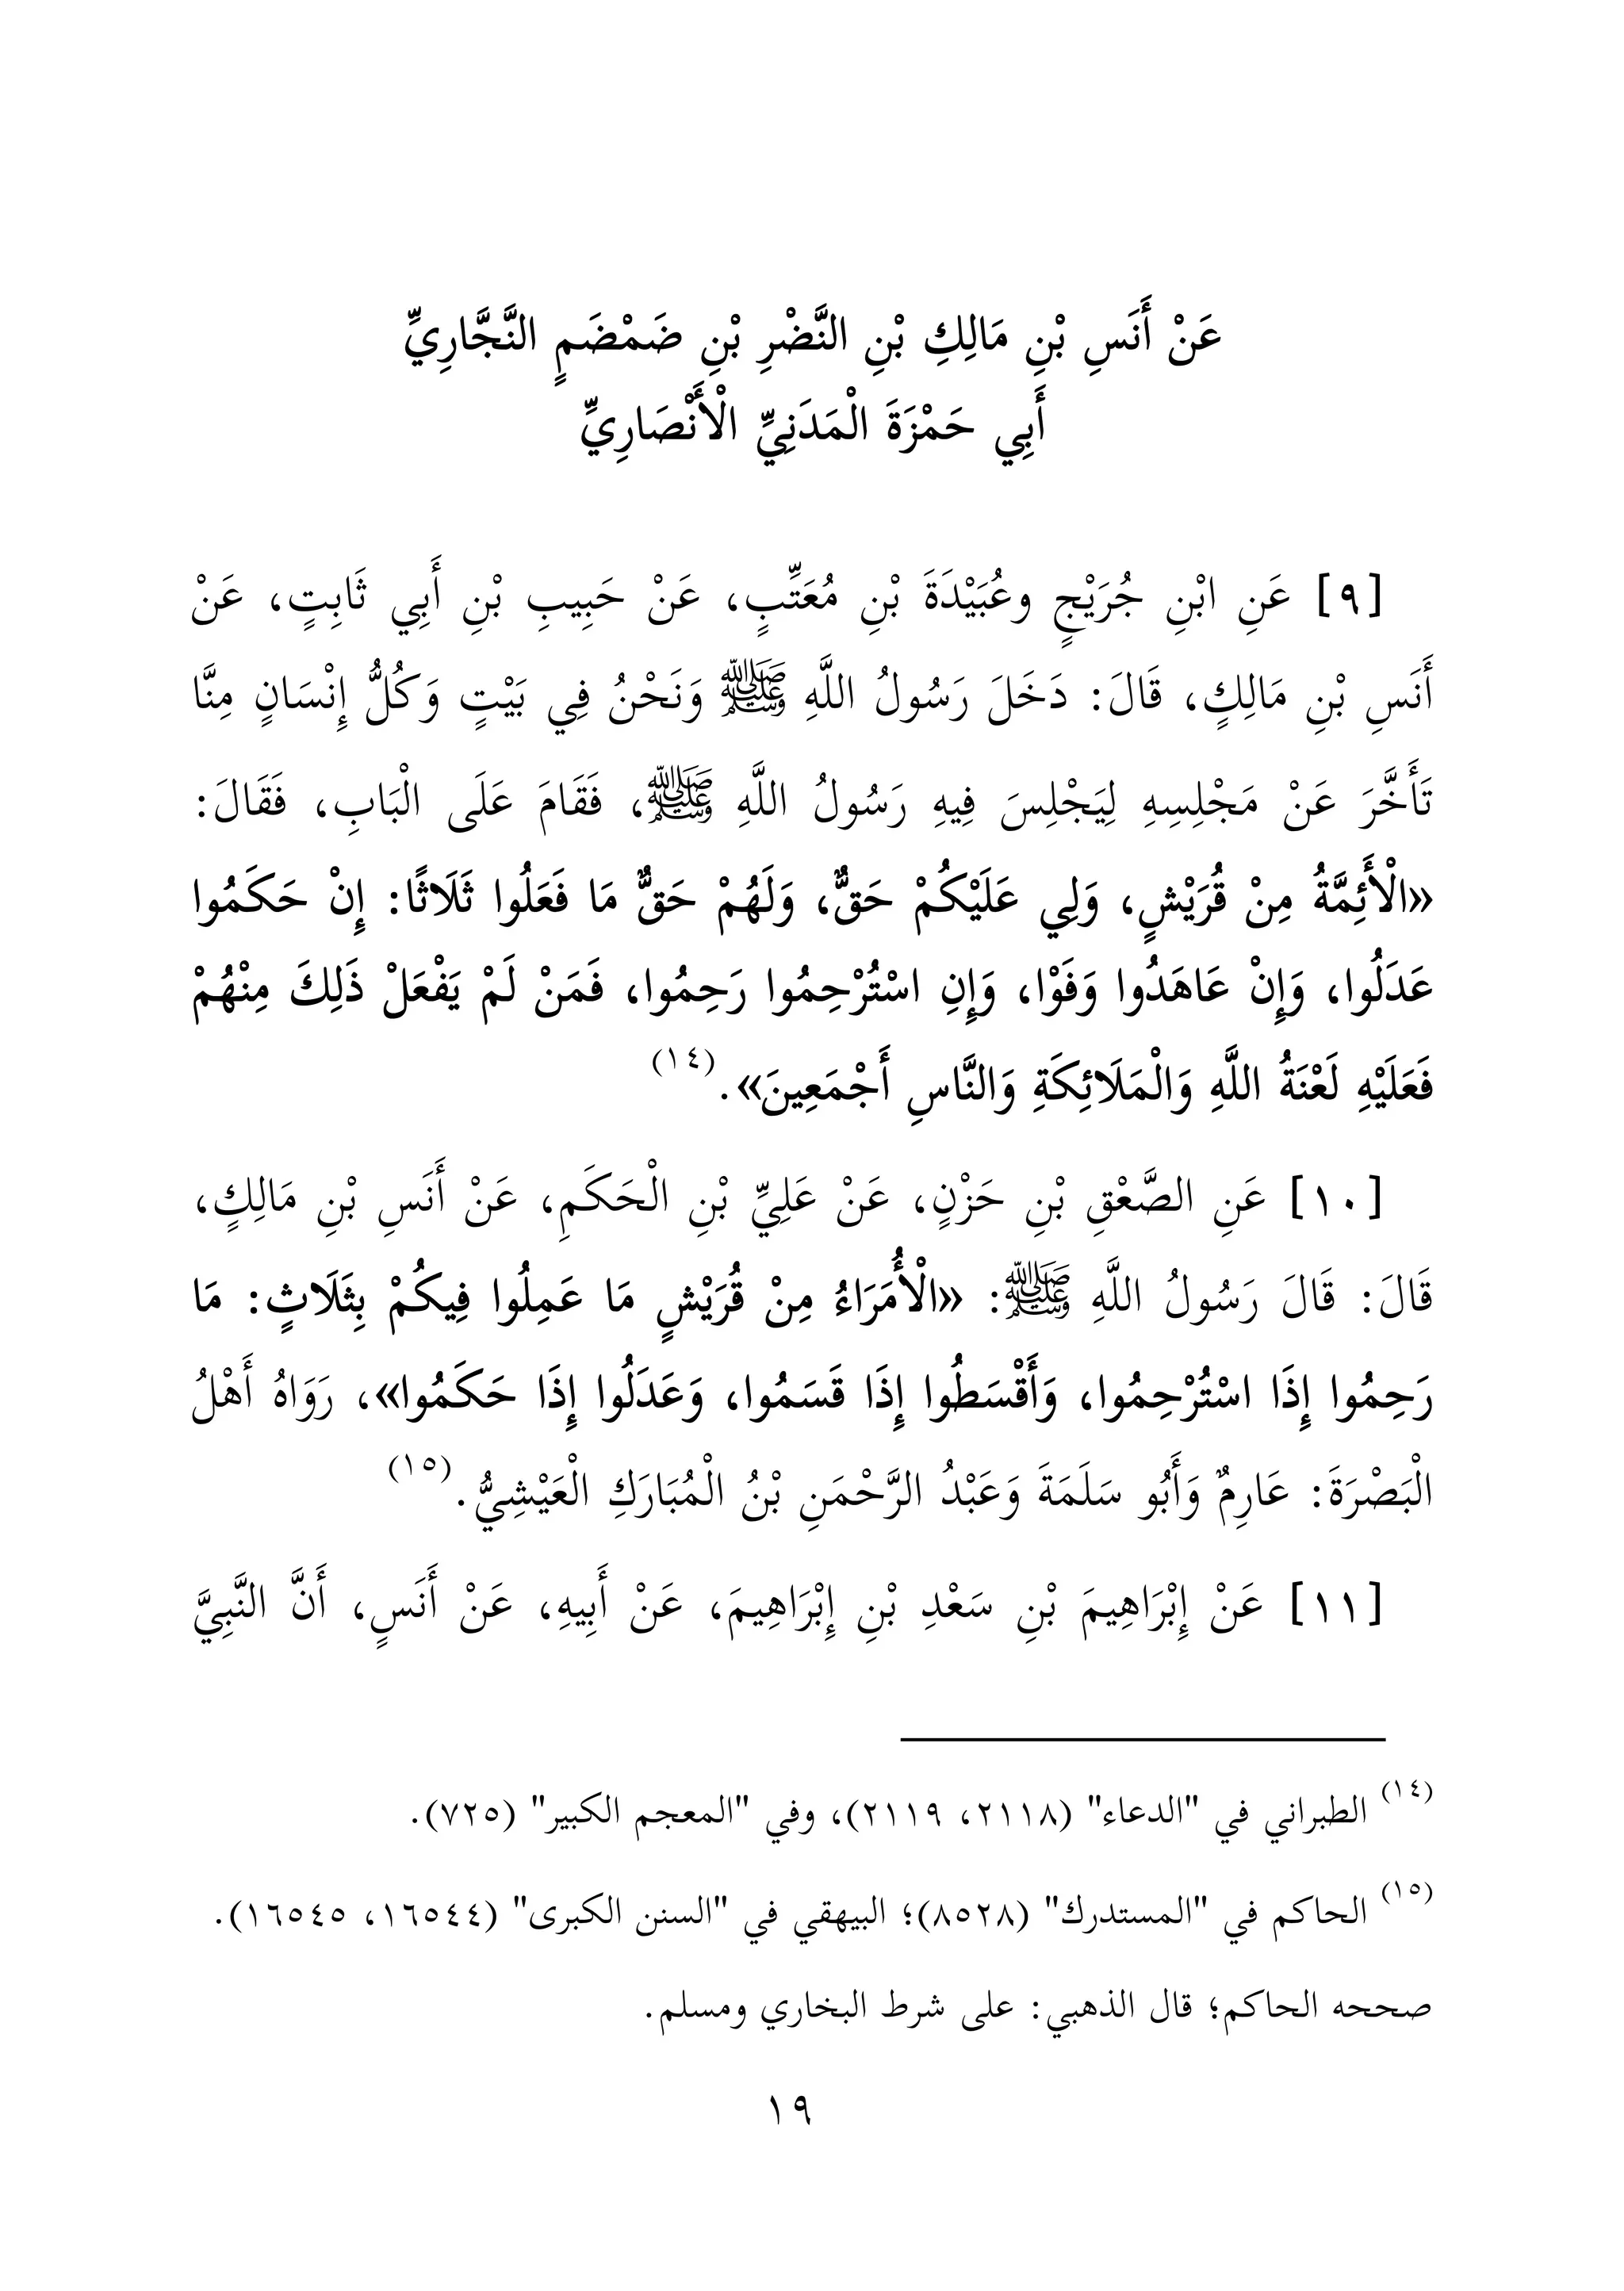 عَنْ أَنَسِ بْنِ مَالِكِ بْنِ النَّضْرِ بْنِ ضَمْضَمٍ النَّجَّارِيِّ
أَبِي حَمْزَةَ الْمَدَنِيِّ الْأَنْصَارِيِّ
[٩] عَنِ ابْنِ جُرَيْجٍ وعُبَيْدَةَ بْنِ مُعَتِّبٍ، عَنْ حَبِيبِ بْنِ أَبِي ثَابِتٍ، عَنْ
أَنَسِ بْنِ مَالِكٍ، قَالَ: دَخَلَ رَسُولُ اللَّهِ ﷺ وَنَحْنُ فِي بَيْتٍ وَكُلُّ إِنْسَانٍ مِنَّا
تَأَخَّرَ عَنْ مَجْلِسِهِ لِيَجْلِسَ فِيهِ رَسُولُ اللَّهِ ﷺ، فَقَامَ عَلَى الْبَابِ، فَقَالَ:
«الْأَئِمَّةُ مِنْ قُرَيْشٍ، وَلِي عَلَيْكُمْ حَقٌّ، وَلَهُمْ حَقٌّ مَا فَعَلُوا ثَلَاثًا: إِنْ حَكَمُوا
عَدَلُوا، وَإِنْ عَاهَدُوا وَفَوْا، وَإِنِ اسْتُرْحِمُوا رَحِمُوا، فَمَنْ لَمْ يَفْعَلْ ذَلِكَ مِنْهُمْ
فَعَلَيْهِ لَعْنَةُ اللَّهِ وَالْمَلَائِكَةِ وَالنَّاسِ أَجْمَعِينَ».(١٤)
[١٠] عَنِ الصَّعْقِ بْنِ حَزْنٍ، عَنْ عَلِيِّ بْنِ الْحَكَمِ، عَنْ أَنَسِ بْنِ مَالِكٍ،
قَالَ: قَالَ رَسُولُ اللَّهِ ﷺ: «الْأُمَرَاءُ مِنْ قُرَيْشٍ مَا عَمِلُوا فِيكُمْ بِثَلَاثٍ: مَا
رَحِمُوا إِذَا اسْتُرْحِمُوا، وَأَقْسَطُوا إِذَا قَسَمُوا، وَعَدَلُوا إِذَا حَكَمُوا»، رَوَاهُ أَهْلُ
الْبَصْرَةَ: عَارِمٌ وَأَبُو سَلَمَةَ وَعَبْدُ الرَّحْمَنِ بْنُ الْمُبَارَكِ الْعَيْشِيُّ.(١٥)
[١١] عَنْ إِبْرَاهِيمَ بْنِ سَعْدِ بْنِ إِبْرَاهِيمَ، عَنْ أَبِيهِ، عَنْ أَنَسٍ، أَنَّ النَّبِيَّ
(١٤) الطبراني في "الدعاء" (٢١١٨، ٢١١٩)، وفي "المعجم الكبير" (٧٢٥).
(١٥) الحاكم في "المستدرك" (٨٥٢٨)؛ البيهقي في "السنن الكبرى" (١٦٥٤٤، ١٦٥٤٥).
صححه الحاكم؛ قال الذهبي: على شرط البخاري ومسلم.
١٩